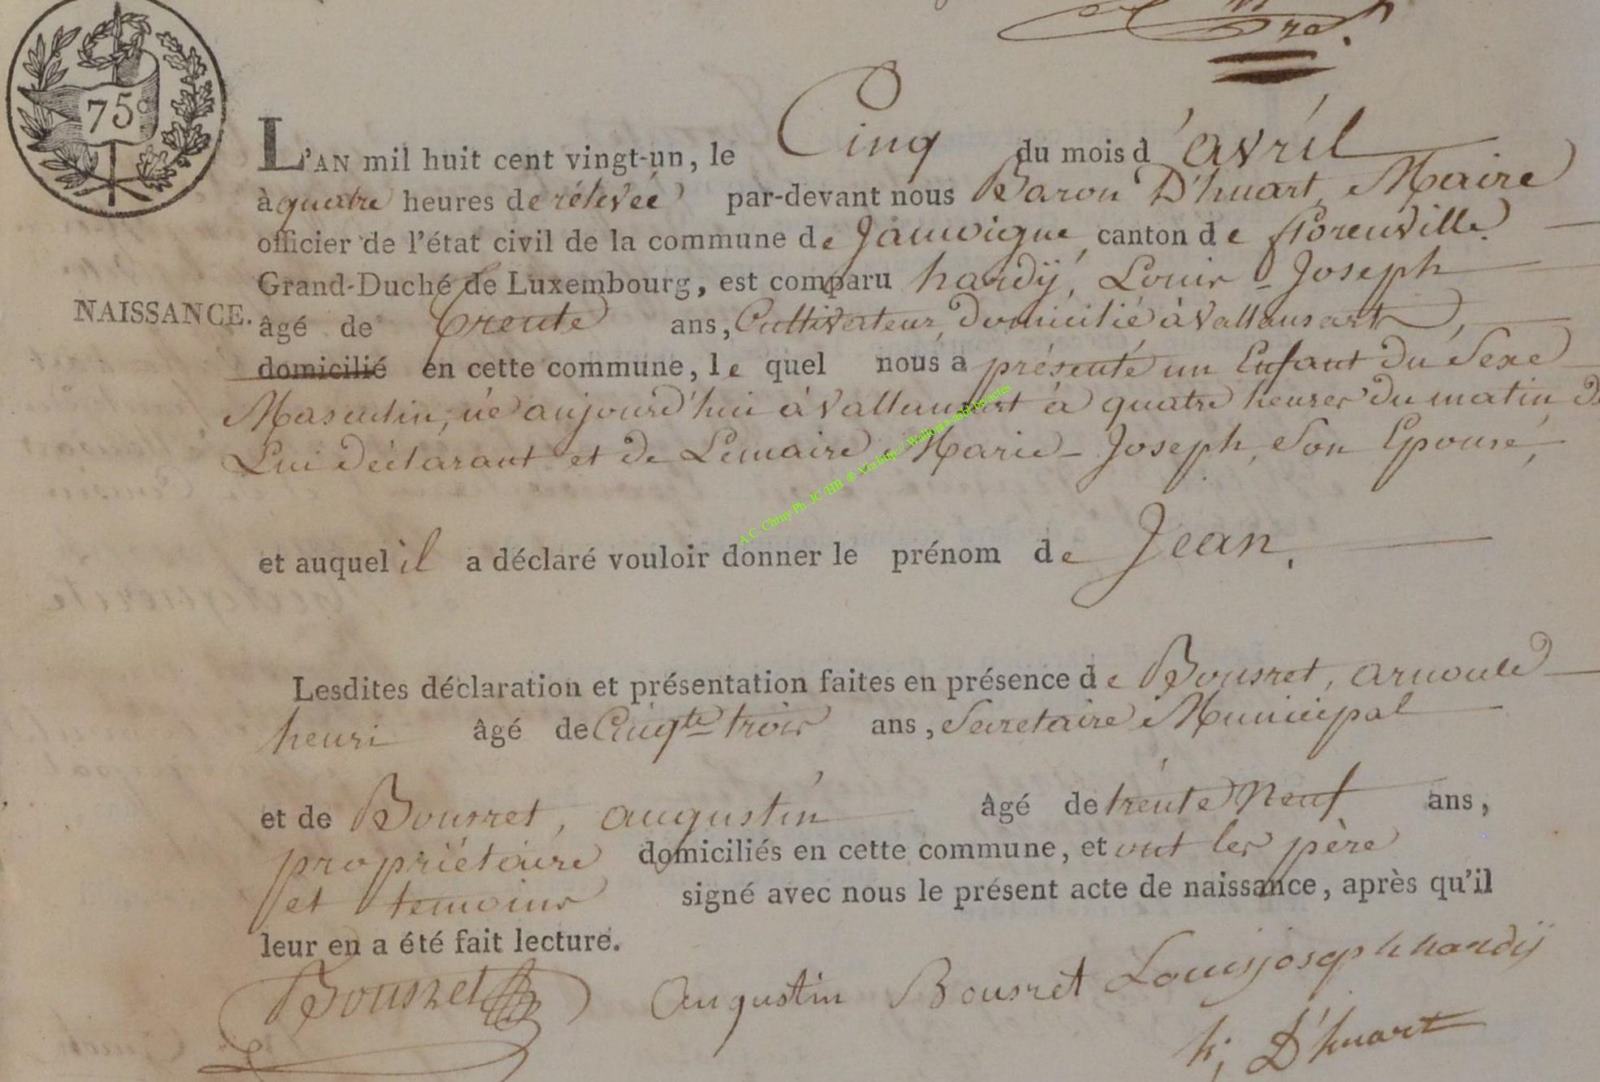 75c
L'AN mil huit cent vingt-un, le Cinq du mois d'avril
à quatre heures de rélevée par-devant nous Baron D'huart, Maire
officier de l'état civil de la commune de Jamoigne, canton de florenville.
Grand-Duché de Luxembourg, est comparu hardÿ, Louis-Joseph
NAISSANCE. âgé de trente ans, Cultivateur, Domicilié à Vallansart,
domicilié en cette commune, le quel nous a présenté un Enfant Du Sexe
Masculin, né aujourd'hui à Vallansart à quatre heures du matin, De
Lui déclarant et de Lemaire Marie-Joseph, Son Epouse,
A.C. Chiny Ph. JC/HB
et auquel il a déclaré vouloir donner le prénom de Jean.
Lesdites déclaration et présentation faites en présence de Bousret, arnould
henri âgé de Cinqte trois ans, Secretaire Municipal
et de Bousret, augustin âgé de trente Neuf ans,
propriétaire domiciliés en cette commune, et ont les père
et temoins signé avec nous le présent acte de naissance, après qu'il
leur en a été fait lecture.
Bousret Augustin Bousret Louisjoseph hardÿ
h; D'huart